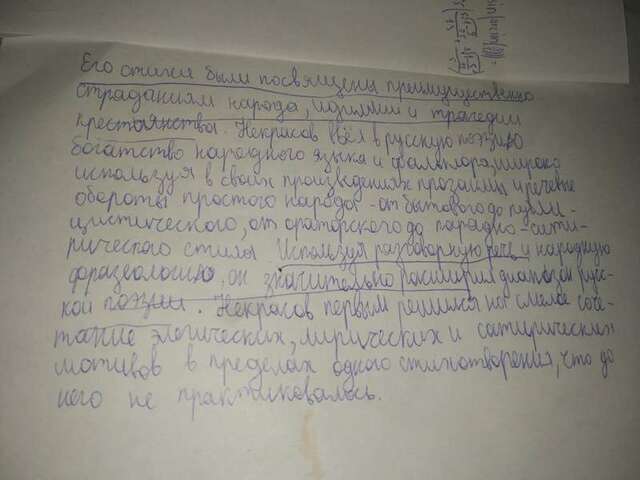 Его стихи были посвящены преимущественно
страданиям народа, идиллии и трагедии
крестьянства. Некрасов ввёл в русскую поэзию
богатство народного языка и фольклора, широко
используя в своих произведениях прозаизмы и речевые
обороты простого народа - от бытового до публи-
цистического, от ораторского до пародно-сати-
рического стиля. Используя разговорную речь и народную
фразеологию, он значительно расширил диапазон рус-
ской поэзии. Некрасов первым решился на смелое соче-
тание элегических, лирических и сатирических
мотивов в пределах одного стихотворения, что до
него не практиковалось.